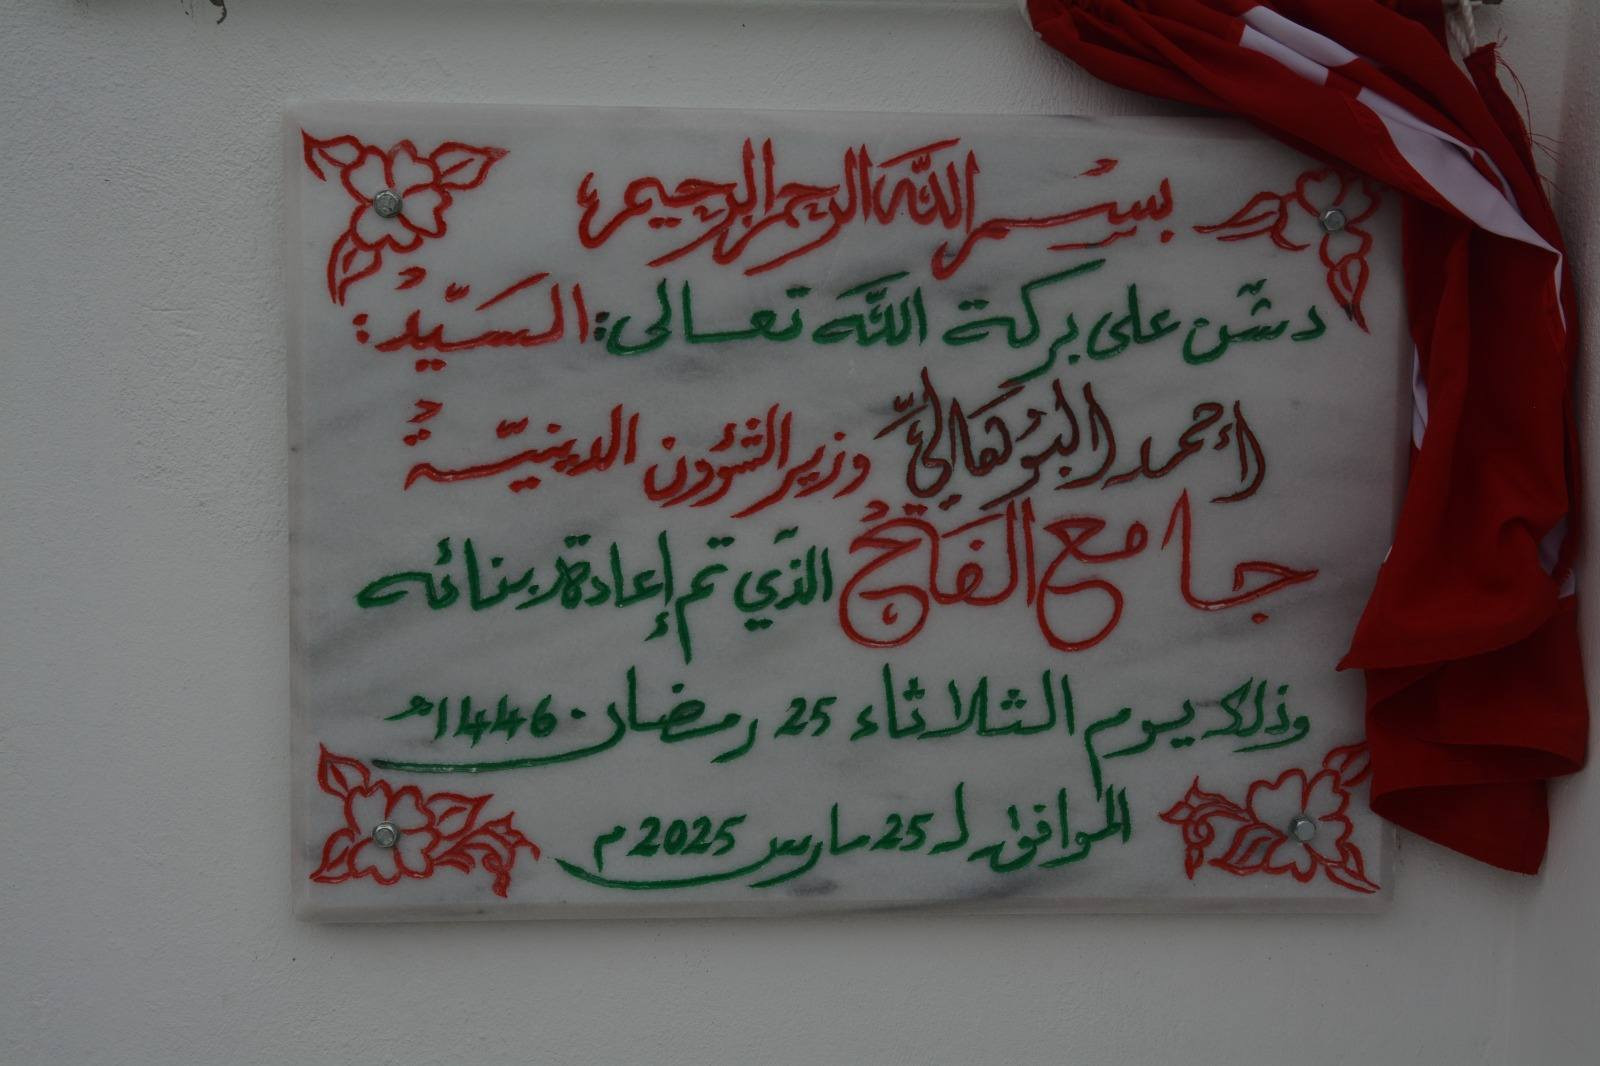 بسم الله الرحمن الرحيم
دشّن على بركة الله تعالى: السيّد:
أحمد البوهالي وزير الشؤون الدينيّة
جامع الفاتح الذي تم إعادة بنائه
وذلك يوم الثلاثاء 25 رمضان 1446هـ
الموافق لـ 25 مارس 2025 م